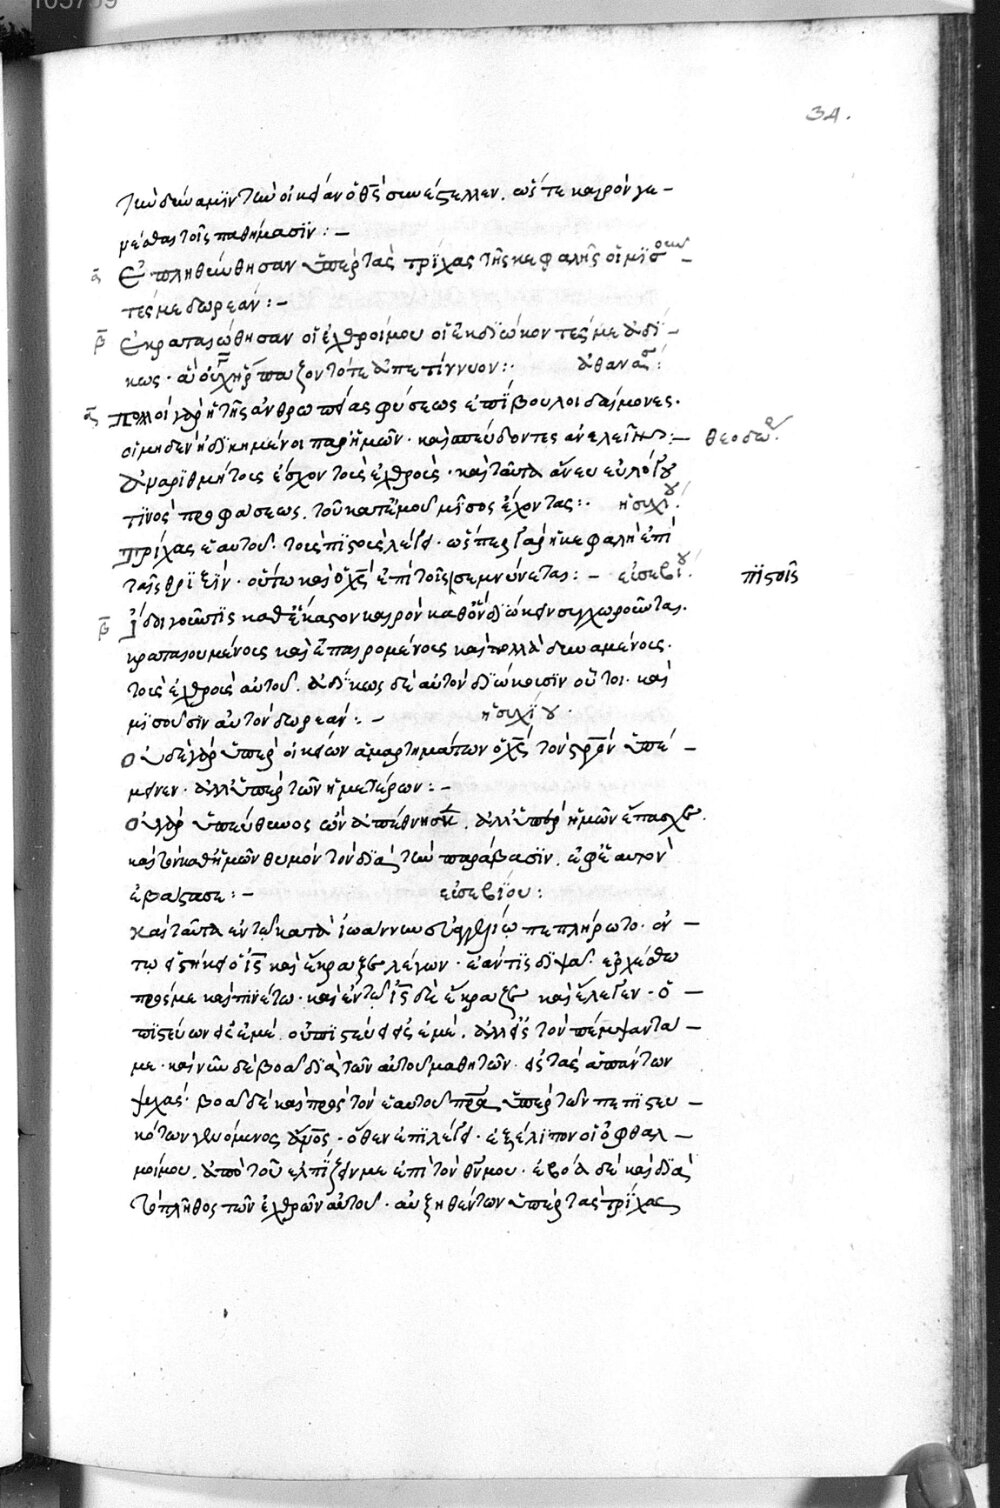 34.
τὴν δύναμιν τὴν οἰκείαν ὁ θς συνέστελλεν. ὥστε καιρὸν γε-
νέσθαι τοῖς παθήμασιν: -
α Ἐπληθύνθησαν ὑπὲρ τὰς τρίχας τῆς κεφαλῆς οἱ μισοῦν-
τές με δωρεάν: -
β Ἐκραταιώθησαν οἱ ἐχθροί μου οἱ ἐκδιώκοντές με ἀδί-
κως. ἃ οὐχ ἥρπαζον τότε ἀπετίννυον: ἀθανασ:
α Πολλοὶ γὰρ τῆς ἀνθρωπείας φύσεως ἐπίβουλοι δαίμονες.
οἱ μηδὲν ἠδικημένοι παρ' ἡμῶν. καὶ σπεύδοντες ἀνελεῖν: - θεοδω
ἀναριθμήτους ἔσχον τοὺς ἐχθρούς. καὶ ταῦτα ἄνευ εὐλόγου
τινὸς προφάσεως. τοῦ κατ' ἐμοῦ μῖσος ἔχοντας: ἡσυχίου
τρίχας ἑαυτοῦ. τοὺς πιστοὺς λέγει. ὥσπερ γὰρ ἡ κεφαλὴ ἐπὶ
ταῖς θριξίν. οὕτω καὶ ὁ χς ἐπὶ τοῖς σεμνύνεται: - εὐσεβίου πιστοῖς
β
κραταιουμένους καὶ ἐπαιρομένους καὶ πολλὰ δυναμένους.
τοὺς ἐχθροὺς αὐτοῦ. ἀδίκως δὲ αὐτὸν διώκουσιν οὗτοι. καὶ
μισοῦσιν αὐτὸν δωρεάν: - ἡσυχίου.
Οὐδὲ γὰρ ὑπὲρ οἰκείων ἁμαρτημάτων ὁ χς τὸν σρον ὑπέ-
μεινεν. ἀλλ' ὑπὲρ τῶν ἡμετέρων: -
Οὐ γὰρ ὑπεύθυνος ὢν ἀπέθνησκεν. ἀλλ' ὑπὲρ ἡμῶν ἔπασχε.
καὶ τὸν καθ' ἡμῶν θυμὸν τὸν διὰ τὴν παράβασιν. ἐφ' ἑαυτὸν
ἐβάστασε: - εὐσεβίου:
Καὶ ταῦτα ἐν τῷ κατὰ ἰωάννην εὐαγγελίῳ πεπλήρωτο. ἐν-
τῳ εἱστήκει ὁ ις καὶ ἔκραξε λέγων. ἐάν τις διψᾷ. ἐρχέσθω
πρός με καὶ πινέτω. καὶ ἐν τῷ ις δὲ ἔκραξε καὶ ἔλεγεν. ὁ-
πιστεύων εἰς ἐμέ. οὐ πιστεύει εἰς ἐμέ. ἀλλ' εἰς τὸν πέμψαντα-
με. καὶ νῦν δὲ βοᾷ διὰ τῶν αὐτοῦ μαθητῶν. εἰς τὰς ἁπάντων
ψυχάς. βοᾷ δὲ καὶ πρὸς τὸν ἑαυτοῦ πρα ὑπὲρ τῶν πεπιστευ-
κότων γενόμενος ὅθεν ἐπιλέγει. ἐξέλιπον οἱ ὀφθαλ-
μοί μου. ἀπὸ τοῦ ἐλπίζειν με ἐπὶ τὸν θν μου. ἐβόα δὲ καὶ διὰ
τὸ πλῆθος τῶν ἐχθρῶν αὐτοῦ. αὐξηθέντων ὑπὲρ τὰς τρίχας